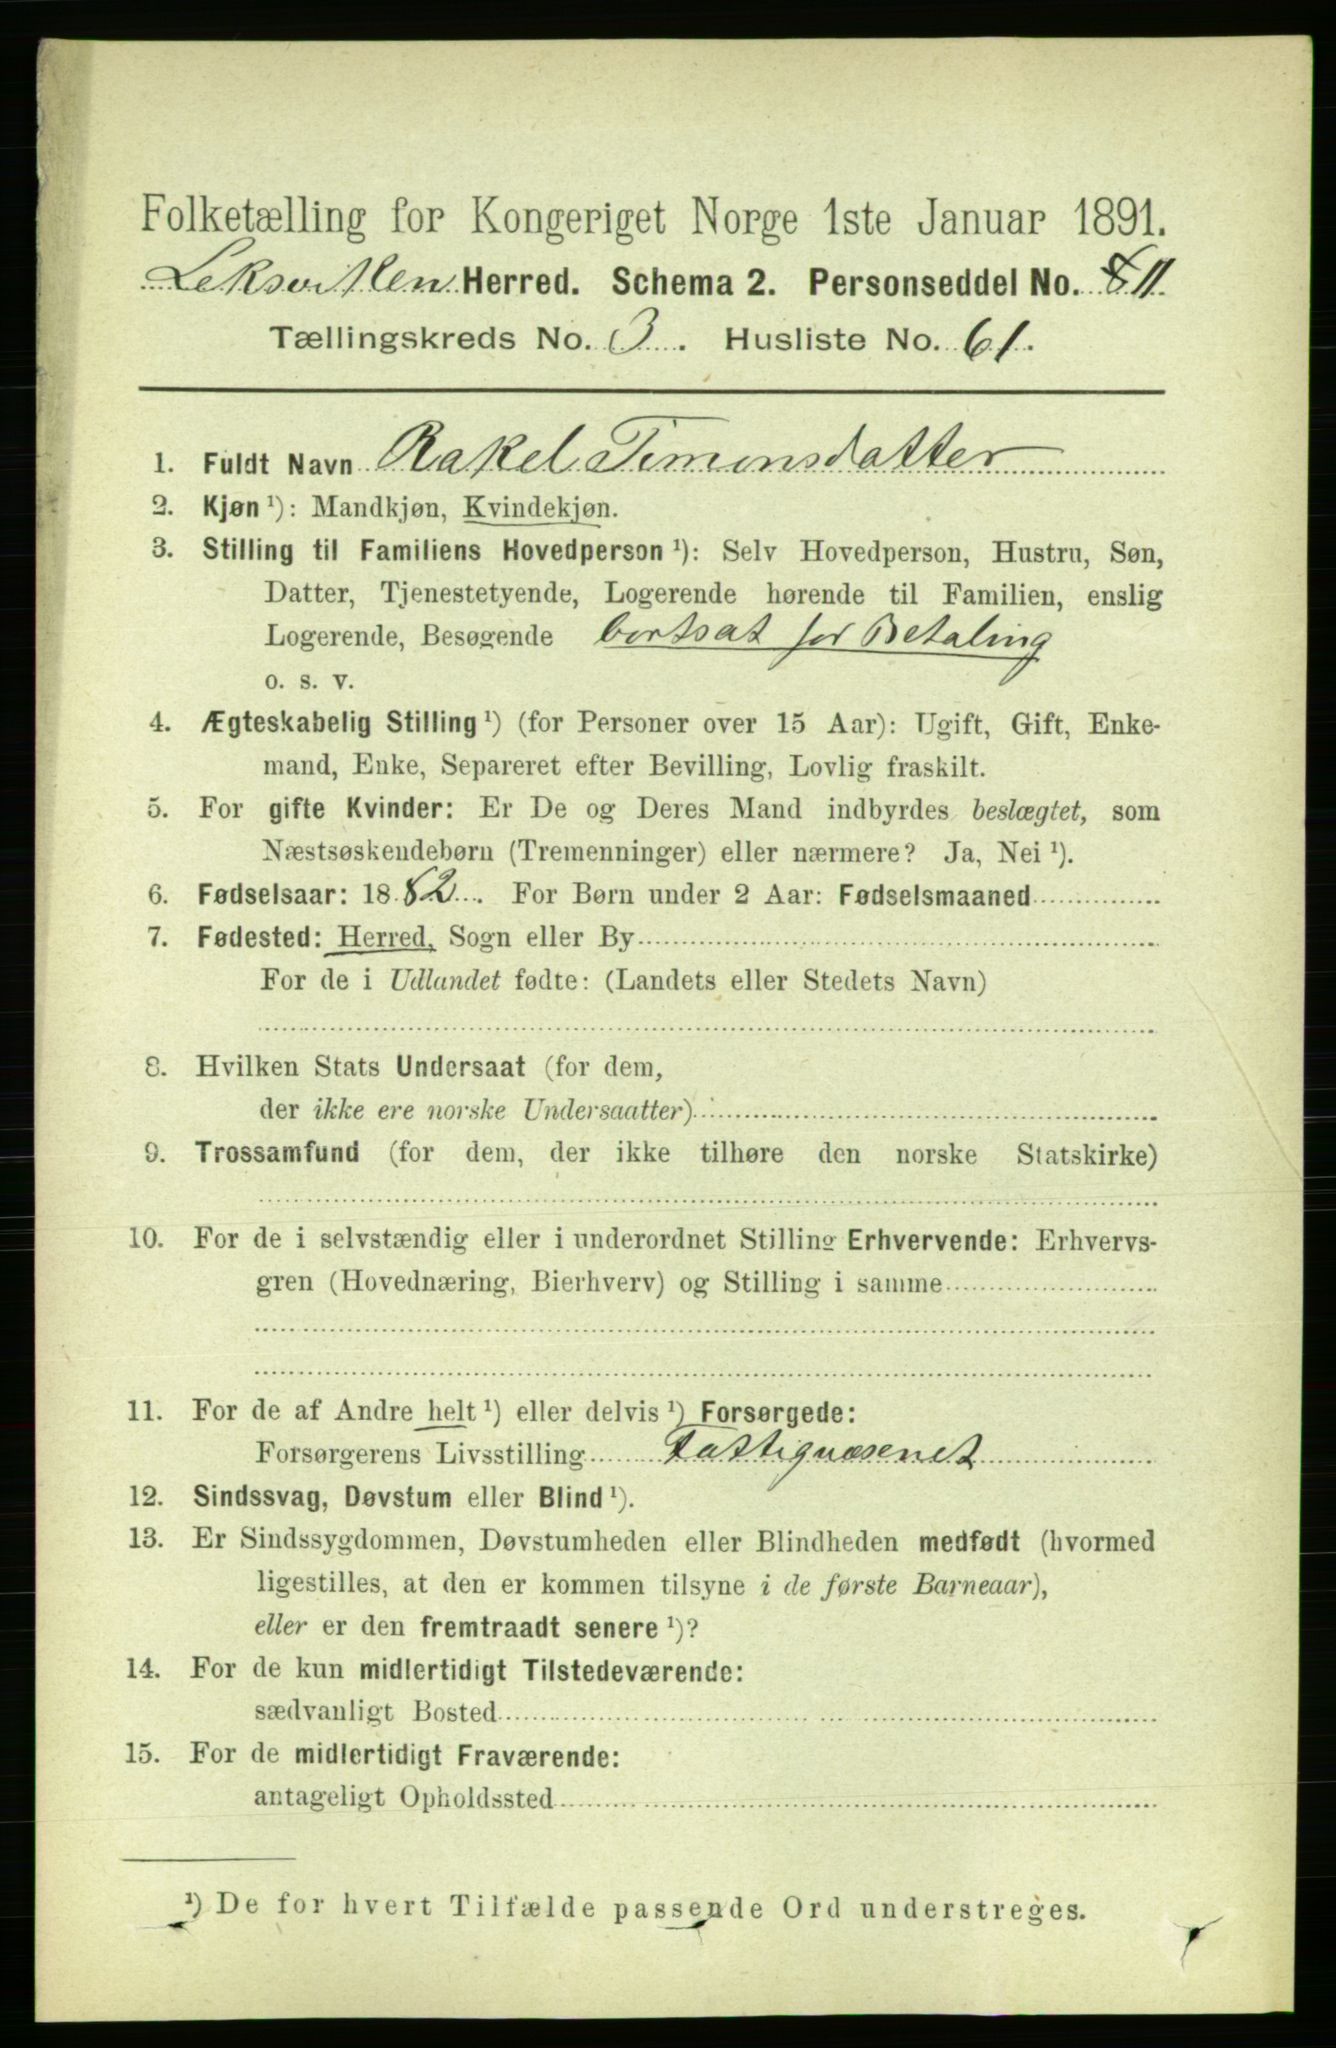 Folketælling for Kongeriget Norge 1ste Januar 1891.
Leksviken Herred. Schema 2. Personseddel No. 811.
Tællingskreds No. 3. Husliste No. 61.
1. Fuldt Navn Rakel Simonsdatter
2. Kjøn ¹): Mandkjøn, Kvindekjøn.
3. Stilling til Familiens Hovedperson ¹): Selv Hovedperson, Hustru, Søn,
Datter, Tjenestetyende, Logerende hørende til Familien, enslig
Logerende, Besøgende bortsat for Betaling
o. s. v.
4. Ægteskabelig Stilling ¹) (for Personer over 15 Aar): Ugift, Gift, Enke-
mand, Enke, Separeret efter Bevilling, Lovlig fraskilt.
5. For gifte Kvinder: Er De og Deres Mand indbyrdes beslægtet, som
Næstsøskendebørn (Tremenninger) eller nærmere? Ja, Nei ¹).
6. Fødselsaar: 1882. For Børn under 2 Aar: Fødselsmaaned
7. Fødested: Herred, Sogn eller By
For de i Udlandet fødte: (Landets eller Stedets Navn)
8. Hvilken Stats Undersaat (for dem,
der ikke ere norske Undersaatter)
9. Trossamfund (for dem, der ikke tilhøre den norske Statskirke)
10. For de i selvstændig eller i underordnet Stilling Erhvervende: Erhvervs-
gren (Hovednæring, Bierhverv) og Stilling i samme
11. For de af Andre helt ¹) eller delvis ¹) Forsørgede:
Forsørgerens Livsstilling Fattigvæsenet
12. Sindssvag, Døvstum eller Blind ¹).
13. Er Sindssygdommen, Døvstumheden eller Blindheden medfødt (hvormed
ligestilles, at den er kommen tilsyne i de første Barneaar),
eller er den fremtraadt senere ¹)?
14. For de kun midlertidigt Tilstedeværende:
sædvanligt Bosted
15. For de midlertidigt Fraværende:
antageligt Opholdssted
¹) De for hvert Tilfælde passende Ord understreges.